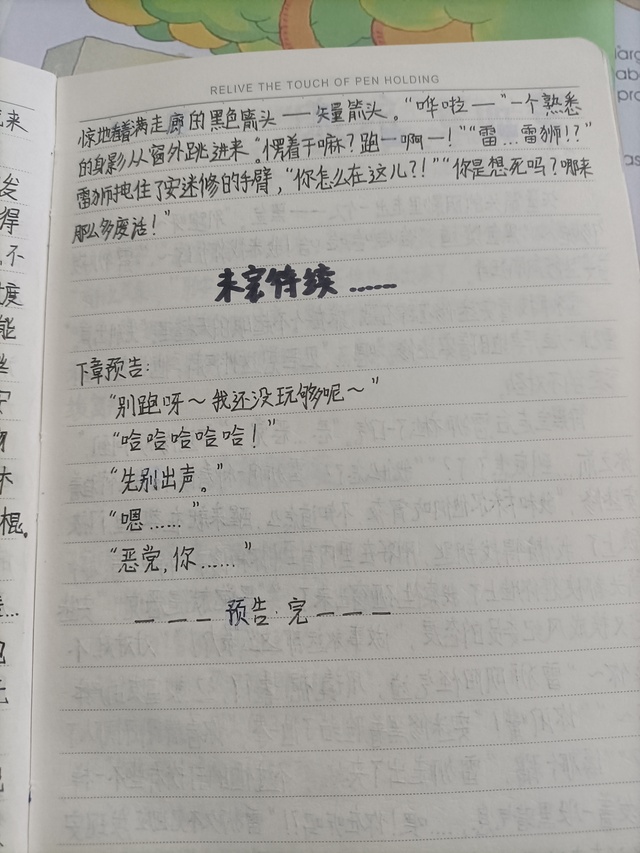 RELIVE THE TOUCH OF PEN HOLDING
惊地看着满走廊的黑色箭头——矢量箭头。“哗啦—”一个熟悉
的身影从窗外跳进来。“愣着干嘛？跑—啊—！”“雷…雷狮！？”
雷狮拽住了安迷修的手臂，“你怎么在这儿？！”“你是想死吗？哪来
那么多废话！”
未完待续……
下章预告：
“别跑呀～我还没玩够呢～”
“哈哈哈哈哈！”
“先别出声。”
“嗯……”
“恶党，你……”
— — — 预告：完 — — —